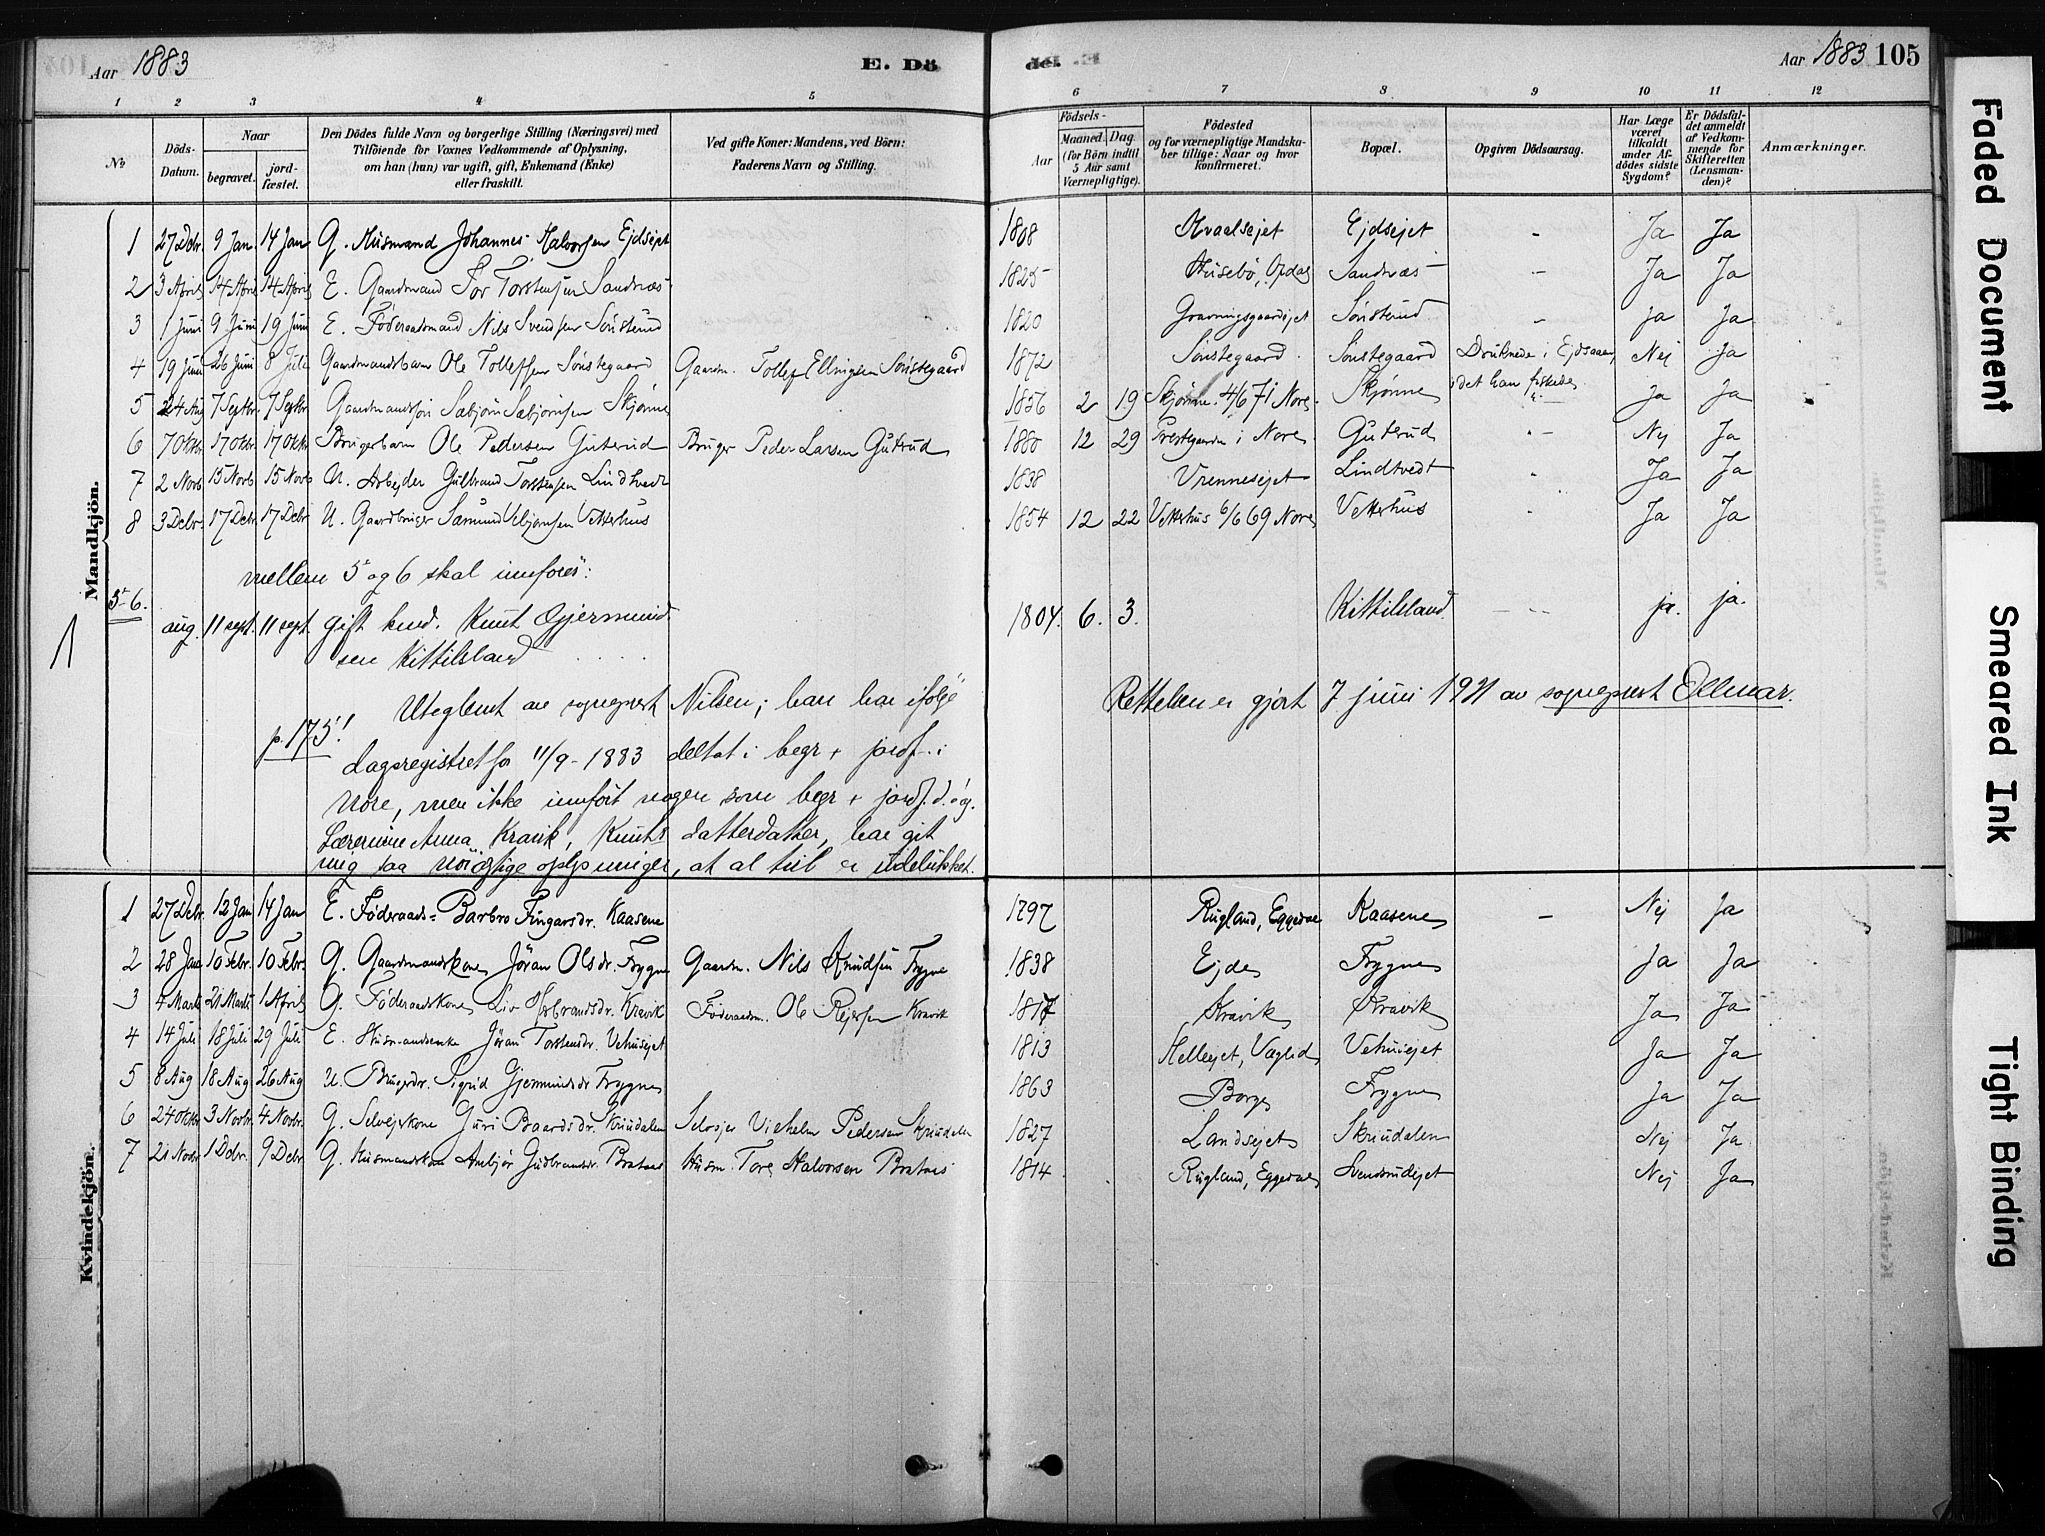 Aar 1883
E. Dö
de. E.
Aar 1883 105
1 2 3 4 5 6 7 8 9 10 11 12
No
Döds-Datum.
Naar
begravet.
jord-fæstet.
Den Dödes fulde Navn og borgerlige Stilling (Næringsvei) med
Tilföiende for Voxnes Vedkommende af Oplysning,
om han (hun) var ugift, gift, Enkemand (Enke)
eller fraskilt.
Ved gifte Koner: Mandens, ved Börn:
Faderens Navn og Stilling.
Födsels-
Aar
Maaned. Dag.
(for Börn indtil
5 Aar samt
Værnepligtige).
Födested
og for værnepligtige Mandska-
ber tillige: Naar og hvor
konfirmeret.
Bopæl.
Opgiven Dödsaarsag.
Har Læge
været
tilkaldt
under Af-
dödes sidste
Sygdom?
Er Dödsfal-
det anmeldt
af Vedkom-
mende for
Skifteretten
(Lensman-
den)?
Anmærkninger.
Mandkjön.
1 27 Debr. 9 Jan. 14 Jan G. Husmand Johannes Halvorsen Ejdsejet 1808 Hvaalsejet Ejdsejet - Ja Ja
2 3 April 14 April 14 April E. Gaardmand Tor Torstensen Sandnæs 1825 Husebö, Opdal Sandnæs - Ja Ja
3 1 Juni 9 Juni 19 Juni E. Föderaadsmand Nils Svendsen Sönsterud 1820 Gravningsgaardsejet Sönsterud - Ja Ja
4 19 Juni 26 Juni 8 Juli Gaardmandsbarn Ole Tollefsen Sönstegaard Gaardm. Tollef Ellingsen Sönstegaard 1872 Sönstegaard Sönstegaard Druknede i Ejdsaaen, idet han fiskede. Nej Ja
5 24 Aug 7 Septbr. 7 Septbr Gaardmandssön Sæbjörn Sæbjörnsen Skjönne 1856 2 19 Skjönne. 4/6 71 Nore. Skjönne Ja Ja
6 7 Oktbr 17 Oktbr. 17 Oktbr Brugerbarn Ole Pedersen Guterud Bruger Peder Larsen Guterud 1880 12 29 Prestegaarden i Nore Guterud - Nej Ja
7 2 Novb 15 Novb 15 Novb U. Arbejder Gulbrand Torstensen Lindtvedt 1838 Vrennesejet Lindtvedt Ja Ja
8 3 Debr. 17 Debr 17 Debr U. Gaardbruger Sæmund Vebjörnsen Vetterhus 1854 12 22 Vetterhus 6/6 69 Nore Vetterhus Ja Ja
mellem 5 og 6 skal innföres:
5-6. aug. 11 sept. 11 sept. gift Knut Gjermund-
sen Kittilsland 1804. 6. 3. Kittilsland. - ja. ja.
p. 175!
Uteglemt av sogneprest Nilsen; han har ifölge
dagsregistret for 11/9-1883 deltat i begr + jordf. i
Nore, men ikke innfört nogen som begr + jordf. d. dg.
Lærerinne Anna Kravik, Knuts datterdatter, har git
mig saa nöiagtige oplysninger, at al tvil er udelukket.
Rettelsen er gjort 7 juni 1921 av sogneprest Ellmar.
Kvindekjön.
1 27 Debr. 12 Jan 14 Jan E. Föderaads= Barbro Fingarsdr. Kaasene 1797 Rugland, Eggedal Kaasene - Nej Ja
2 28 Jan 10 Febr. 10 Febr. G. Gaardmandskone Jöran Olsdr. Frygne Gaardm. Nils Knudsen Frygne 1838 Ejde Frygne Ja Ja
3 4 Marts 21 Marts 1 April G. Föderaadskone Liv Herbrandsdr. Kravik Föderaadsm. Ole Rejersen Kravik 1817 Kravik Kravik Ja Ja
4 14 Juli 18 Juli 29 Juli E. Husmandsenke Jöran Torstensdr. Vehusejet 1813 Hellesjet, Væglid Vehusejet Ja Ja
5 8 Aug 18 Aug 26 Aug U. Brugerdr. Sigrid Gjermundsdr Frygne 1863 Borge Frygne Ja Ja
6 24 Oktbr 3 Novbr. 4 Novbr. G. Selvejerkone Guri Baardsdr. Skrudalen Selvejer Vilhelm Pedersen Skrudalen 1827 Landsejet Skrudalen Nej Ja
7 21 Novbr 1 Debr. 9 Debr G. Husmandskone Anbjör Gudbrandsdr. Brataas Husm. Tore Halvorsen Brataas 1814 Rugland, Eggedal Svendsrudejet Nej Ja
Faded Document
Smeared Ink
Tight Binding